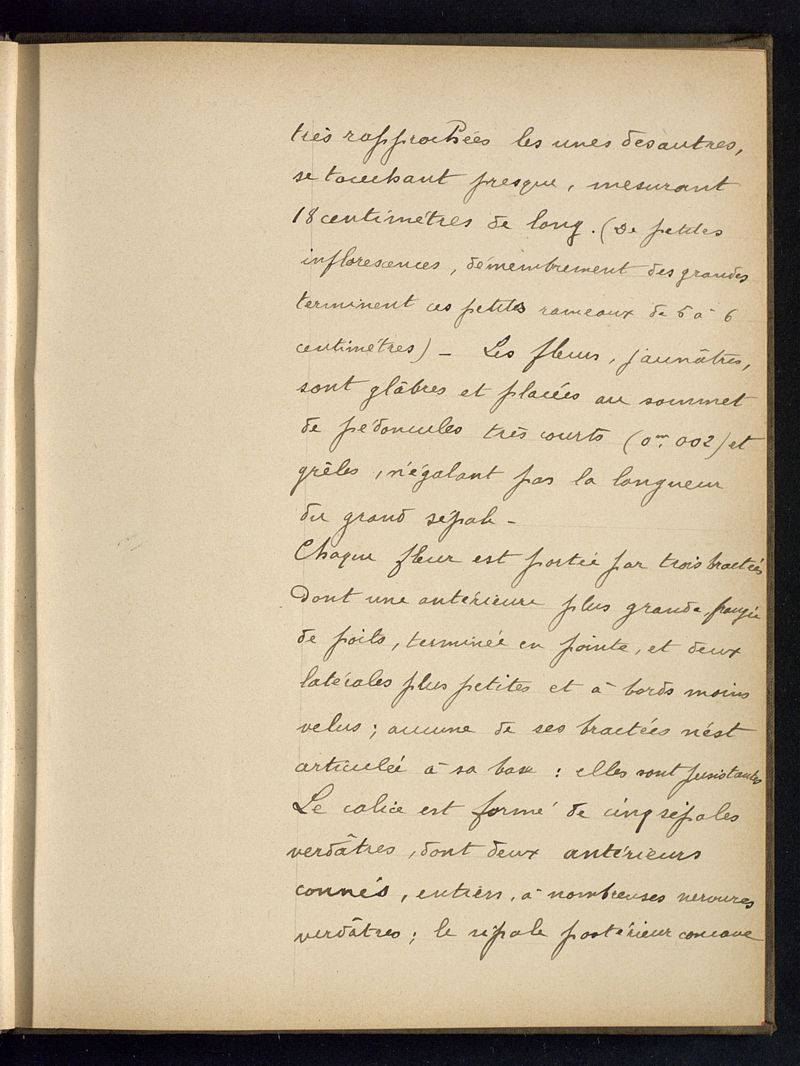 très rapprochées les unes des autres,
se touchant presque, mesurant
18 centimètres de long. (De petites
inflorescences, démembrement des grandes
terminent ces petits rameaux de 5 à 6
centimètres) - Les fleurs, jaunâtres,
sont glâbres et placées au sommet
de pédoncules très courts (0m,002) et
grêles, n'égalant pas la longueur
du grand sépale -
Chaque fleur est portée par trois bractées
dont une antérieure plus grande, frangée
de poils, terminée en pointe, et deux
latérales plus petites et à bords moins
velus ; aucune de ses bractées n'est
articulée à sa base : elles sont persistantes
Le calice est formé de cinq sépales
verdâtres, dont deux antérieurs
connés, entiers, à nombreuses nervures
verdâtres ; le sépale postérieur concave